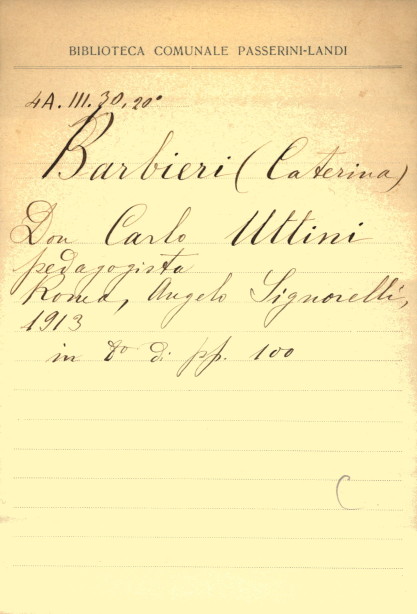 BIBLIOTECA COMUNALE PASSERINI-LANDI
4A. III. 30, 20°
Barbieri (Caterina)
Don Carlo Uttini
pedagogista
Roma, Angelo Signorelli,
1913
in 8° di pp. 100
C